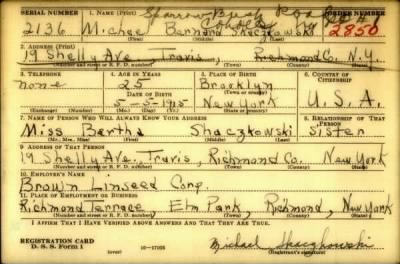 SERIAL NUMBER 1. NAME (Print) ORDER NUMBER
2136 Bernard 2850
(First) (Middle) (Last)
2. ADDRESS (Print)
19 Shelly Ave. Travis, Richmond Co. N.Y.
(Number and street or R. F. D. number) (Town) (County) (State)
3. TELEPHONE 4. AGE IN YEARS 5. PLACE OF BIRTH 6. COUNTRY OF CITIZENSHIP
none 25 Brooklyn
DATE OF BIRTH (Town or county)
5-5-1915 New York U.S.A.
(Exchange) (Number) (Mo.) (Day) (Yr.) (State or country)
7. NAME OF PERSON WHO WILL ALWAYS KNOW YOUR ADDRESS 8. RELATIONSHIP OF THAT PERSON
Miss Bertha Skaczkowski Sister
(Mr., Mrs., Miss) (First) (Middle) (Last)
9. ADDRESS OF THAT PERSON
19 Shelly Ave., Travis, Richmond Co. New York
(Number and street or R. F. D. number) (Town) (County) (State)
10. EMPLOYER'S NAME
Brown Linseed Corp.
11. PLACE OF EMPLOYMENT OR BUSINESS
Richmond Terrace, Elm Park, Richmond, New York
(Number and street or R. F. D. number) (Town) (County) (State)
I AFFIRM THAT I HAVE VERIFIED ABOVE ANSWERS AND THAT THEY ARE TRUE.
REGISTRATION CARD
D. S. S. FORM 1 (over) 16-17105 Michael Skaczkowski
(Registrant's signature)